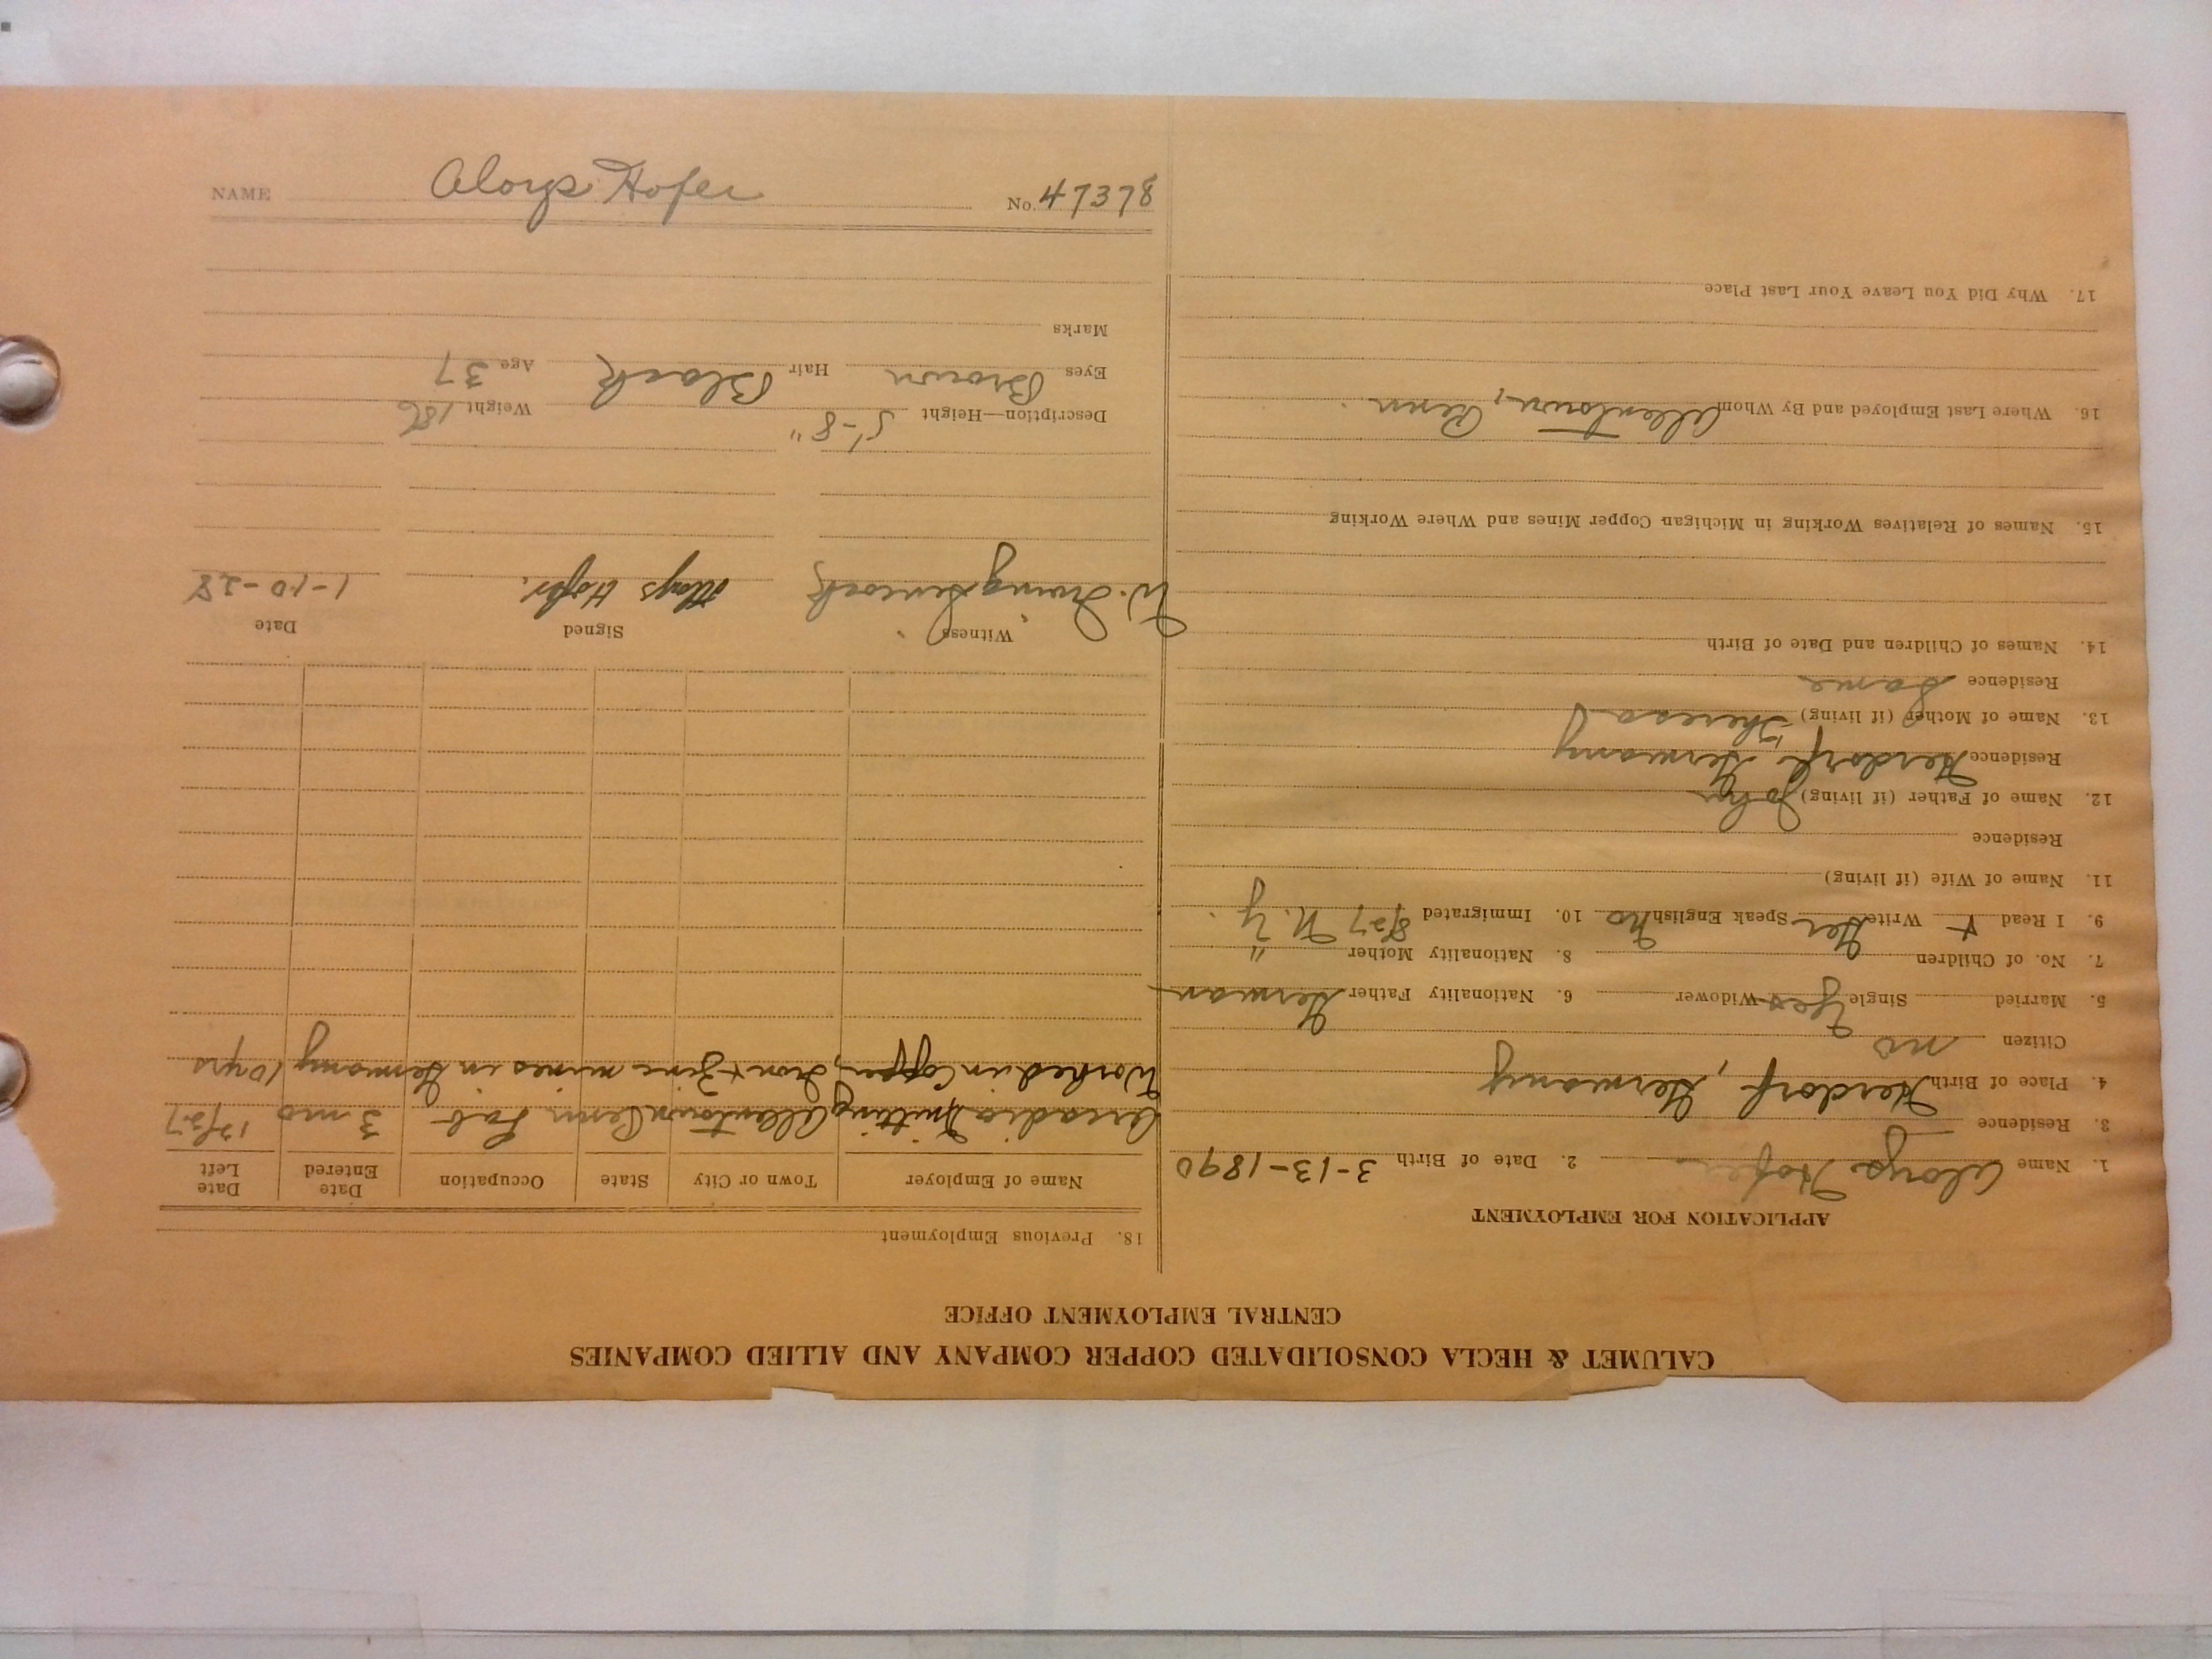 CALUMET & HECLA CONSOLIDATED COPPER COMPANY AND ALLIED COMPANIES
CENTRAL EMPLOYMENT OFFICE
APPLICATION FOR EMPLOYMENT
1. Name Aloys Hofer 2. Date of Birth 3-13-1890
3. Residence
4. Place of Birth Herdorf, Germany
Citizen no
5. Married Single Yes Widower 6. Nationality Father German
7. No. of Children 8. Nationality Mother "
9. I Read + Write Ger Speak English No 10. Immigrated 8/27 N.Y.
11. Name of Wife (if living)
Residence
12. Name of Father (if living) John
Residence Herdorf, Germany
13. Name of Mother (if living) Theresa
Residence Same
14. Names of Children and Date of Birth
15. Names of Relatives Working in Michigan Copper Mines and Where Working
16. Where Last Employed and By Whom Allentown, Penn.
17. Why Did You Leave Your Last Place
18. Previous Employment
Name of Employer Town or City State Occupation Date Entered Date Left
Arcadia Knitting Allentown Penn Lab 3 mo 12/27
Worked in Copper, Iron + Zinc mines in Germany 10 yrs
Witness Signed Date
W. Irving Aloys Hofer. 1-10-28
Description—Height 5'-8" Weight 186
Eyes Brown Hair Black Age 37
Marks
NAME Aloys Hofer No. 47378